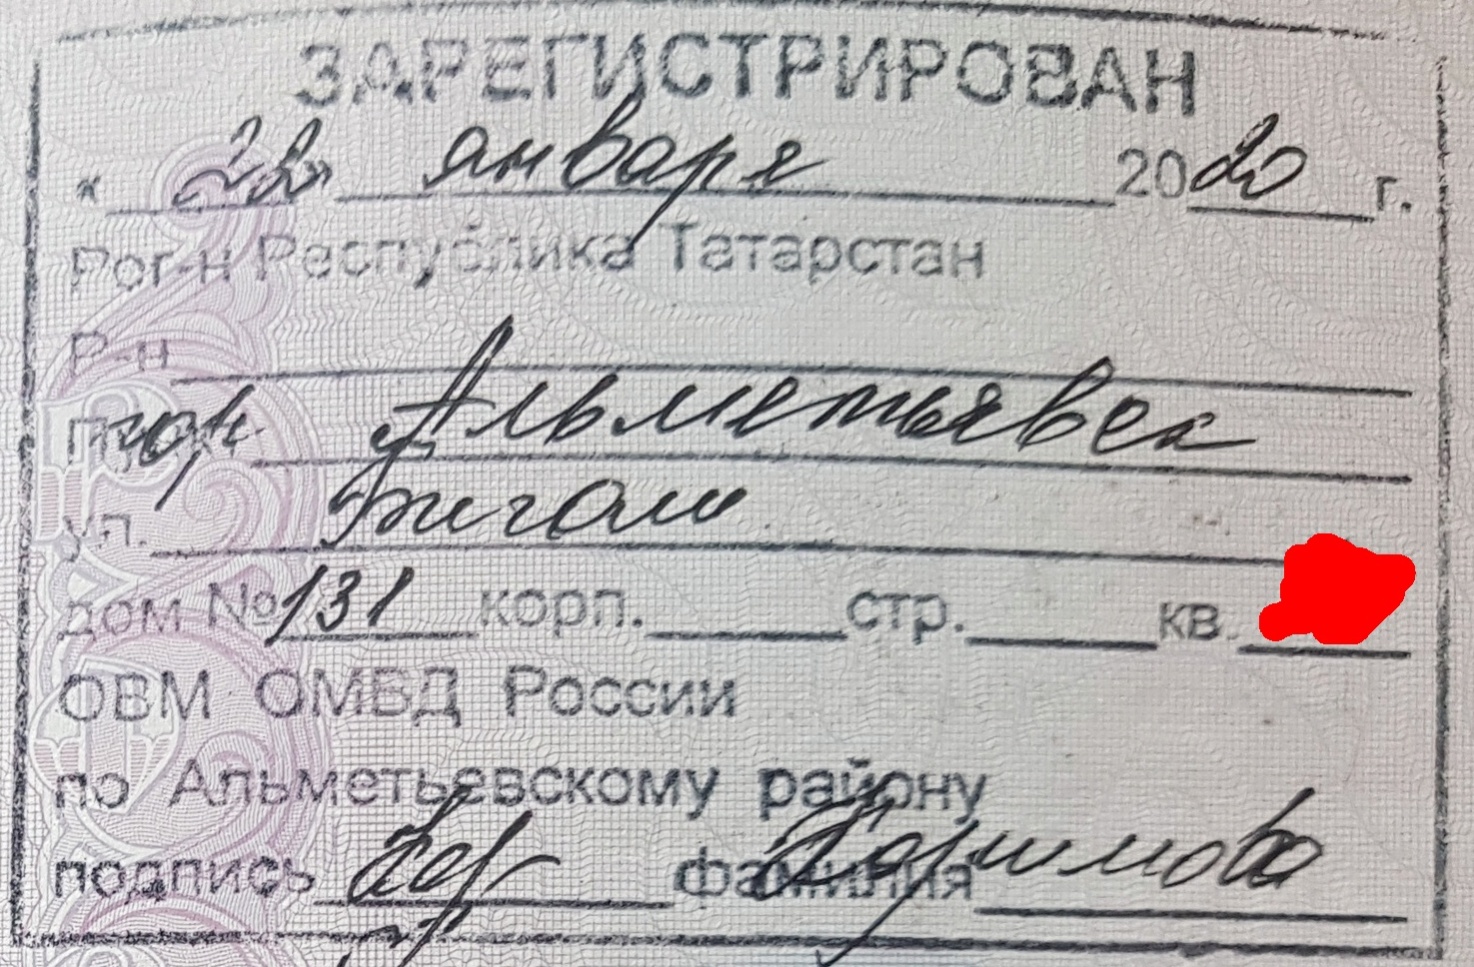 ЗАРЕГИСТРИРОВАН
« 28 » января 2020 г.
Рег-н Республика Татарстан
Р-н
гор. Альметьевск
ул.
дом № 131 корп. стр. кв.
ОВМ ОМВД России
по Альметьевскому району
подпись фамилия Каримова